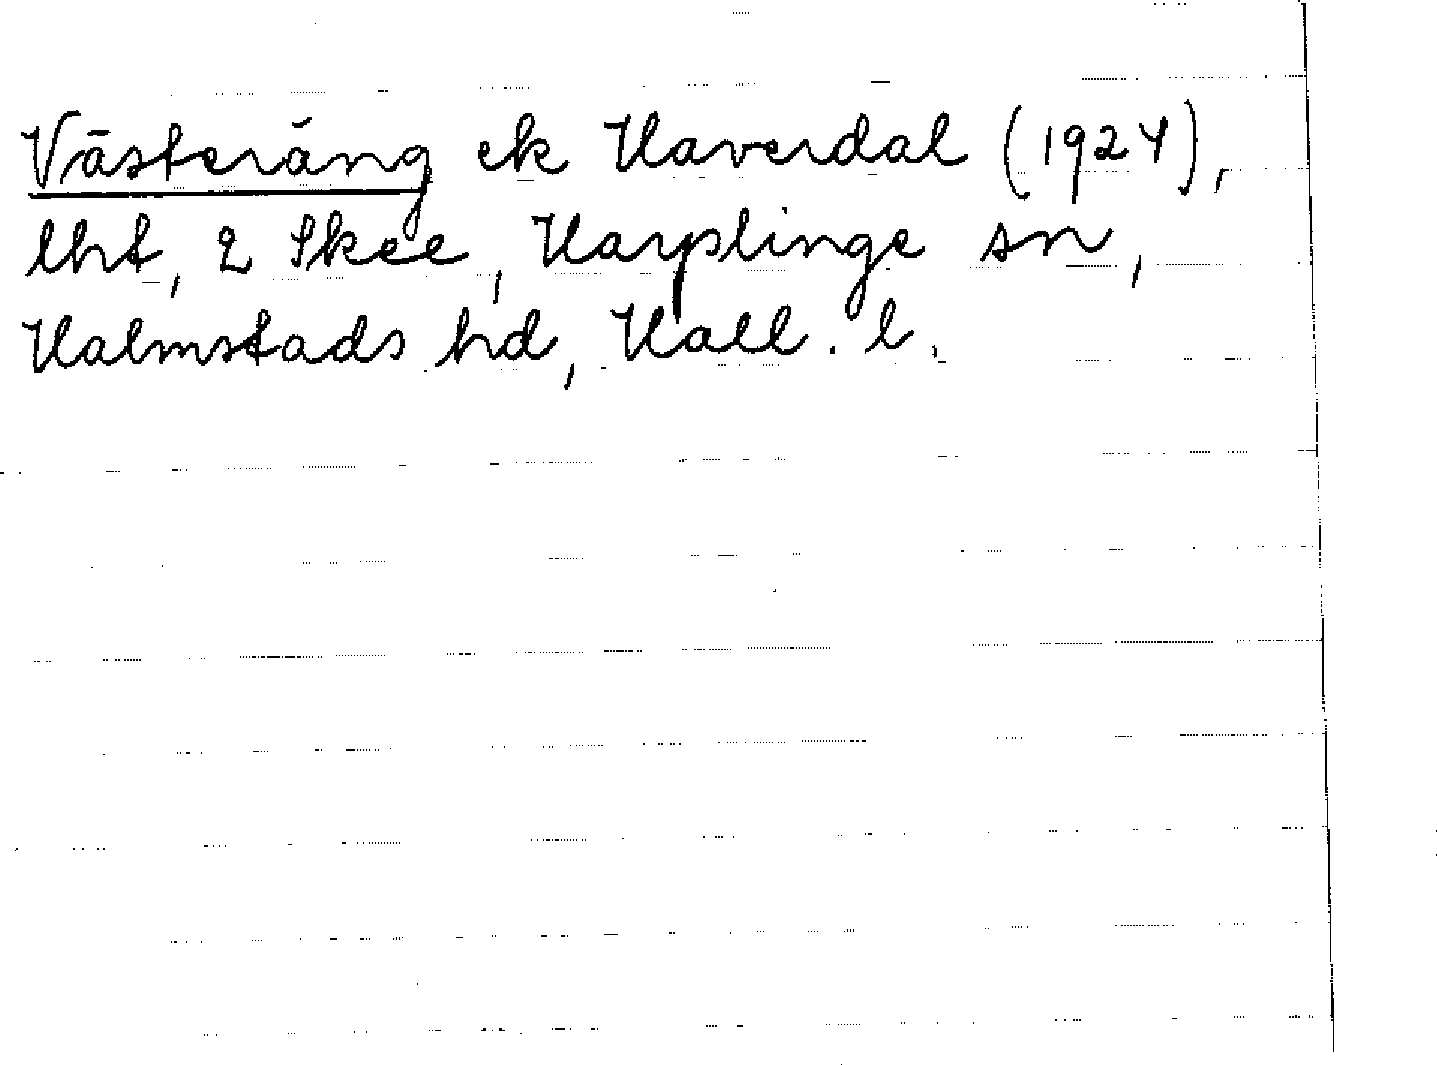 Västeräng ek Haverdal (1924),
lht, 2 Skee, Harplinge sn,
Halmstads hd, Hall. l.